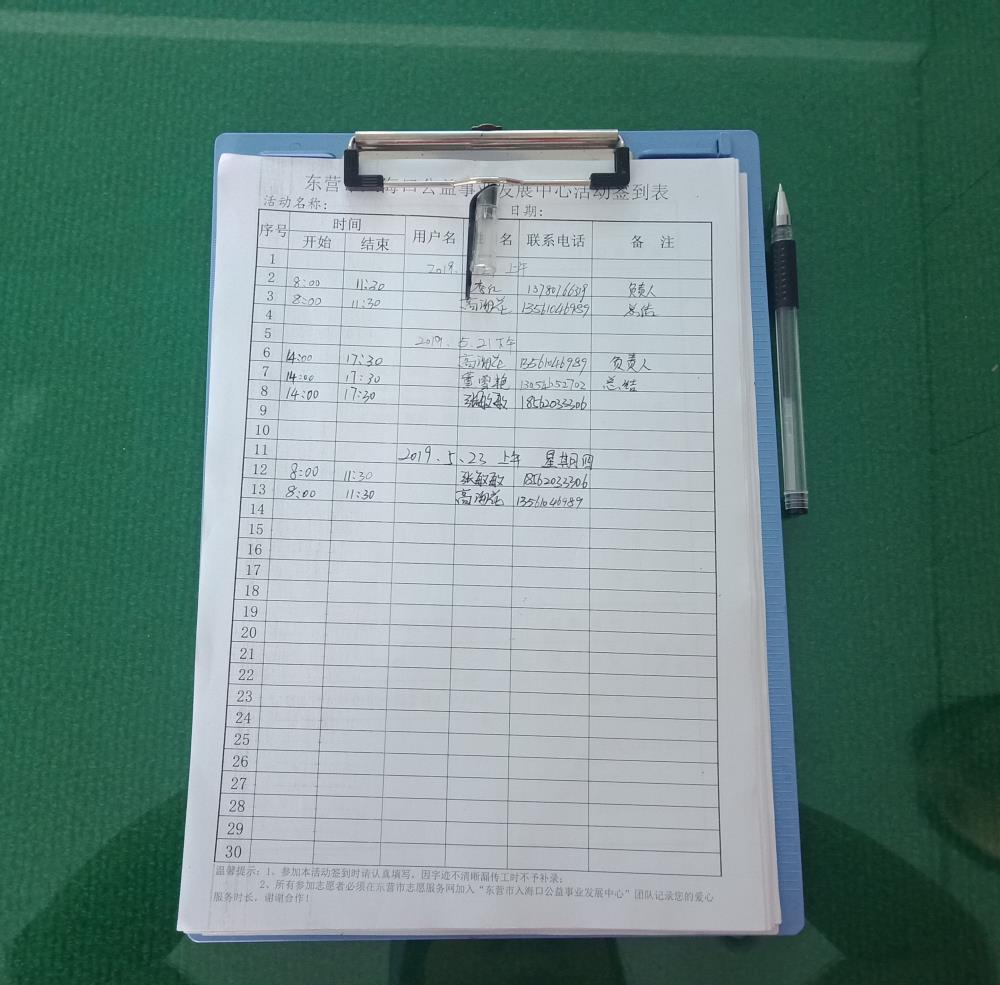 东营 海口公益事业发展中心活动签到表
活动名称: 日期:
序号 时间 用户名 名 联系电话 备 注
开始 结束
1 2019. 上午
2 8:00 11:30 负责人
3 8:00 11:30 高淑花 13561046989 总结
4
5 2019.5.21下午
6 14:00 17:30 高淑花 13561046989 负责人
7 14:00 17:30 董雪艳 总结
8 14:00 17:30 张敏敏 18562033306
9
10
11 2019.5.23 上午 星期四
12 8:00 11:30 张敏敏 18562033306
13 8:00 11:30 高淑花 13561046989
14
15
16
17
18
19
20
21
22
23
24
25
26
27
28
29
30
温馨提示:1、参加本活动签到时请认真填写,因字迹不清晰漏传工时不予补录;
2、所有参加志愿者必须在东营市志愿服务网加入“东营市入海口公益事业发展中心”团队记录您的爱心
服务时长,谢谢合作!